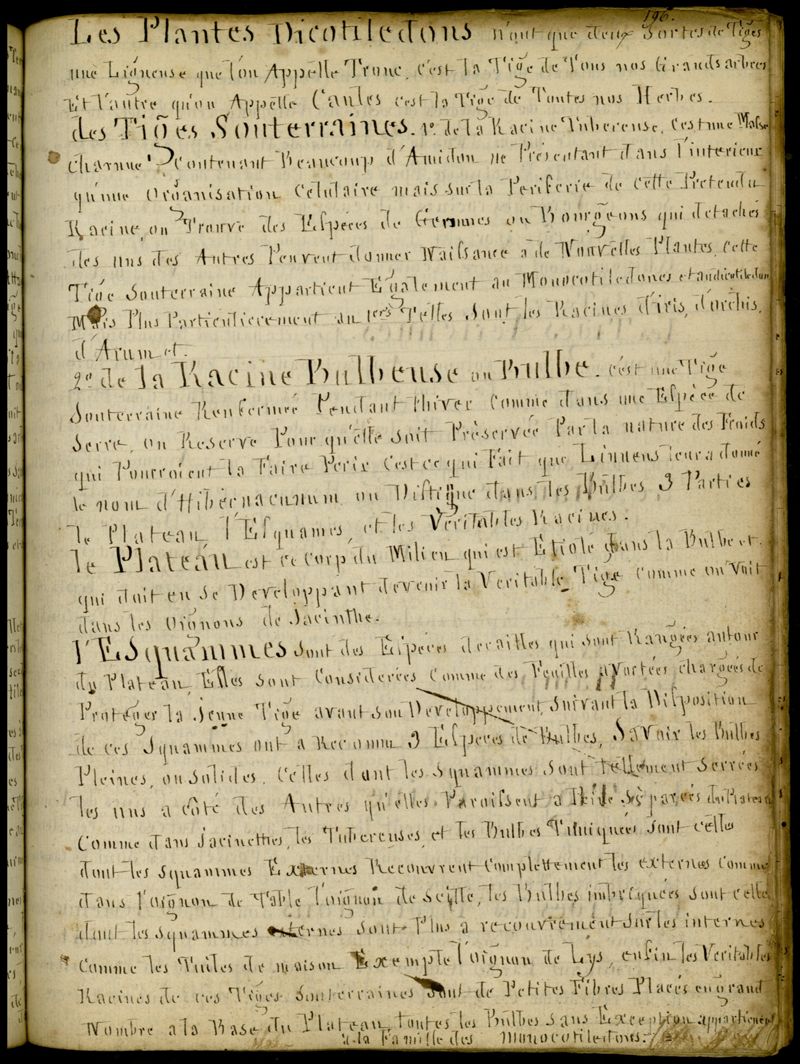 196.
Les Plantes Dicotiledons n'ont que deux Sortes de Tiges
une Ligneuse que l'on Appelle Tronc, c'est la Tige de Tous nos Grands arbres
Et l'autre qu'on Appelle Caules c'est la Tige de Toutes nos Herbes.
des Tiges Souterraines. 1º. de la Racine Tubereuse. C'est une Masse
Charnue Contenant Beaucoup d'Amidon ne Présentant dans l'interieur
qu'une Organisation Celulaire mais sur la Periferie de cette Pretendu
Racine, on Trouve des Espèces de Gemmes ou Bourgeons qui detachés
des uns des Autres Peuvent donner Naissance a de Nouvelles Plantes, Cette
Tige Souterraine Appartient Egalement au Monocotiledones et au dicotiledon
Mais Plus Particulierement au 1ers Telles Sont les Racines d'iris, d'orchis,
d'Arum et.
2º. de la Racine Bulbeuse ou Bulbe. c'est une Tige
Souterraine Renfermée Pendant l'hiver Comme dans une Espèce de
Serre, ou Reserve Pour qu'elle soit Préservée Par la nature des Froids
qui Pourroient la Faire Perir C'est ce qui Fait que Linneus leur a donné
le nom d'Hibernaculum on Distigue dans les Bulbes 3 Parties
le Plateau, l'Esquames, et les Veritables Racines.
le Plateau est ce Corp du Milieu qui est Etiole dans la Bulbe et
qui doit en se Developpant devenir la Veritable Tige Comme on Voit
dans les Oignons de Jacinthe.
l'Esquammes Sont des Espèces decailles qui sont Rangées autour
du Plateau Elles sont Considerées Comme des Feuilles avortées chargées de
Proteger la Jeune Tige avant son Developpement, Suivant la Disposition
de ces Squammes ont a Reconnu 3 Espèces de Bulbes, Savoir les Bulbes
Pleines, ou Solides. Celles dont les Squammes Sont tellement Serrées
les uns a côté des Autres qu'elles Paroissent a Séparés du Plateau
Comme dans Jacinethes, les Tubereuses, et les Bulbes Tuniquées Sont celles
dont les Squammes Externes Recouvrent Complettement les externes Comme
dans l'oignon de Table l'oignon de Scylle, les Bulbes imbriquées sont celle
dont les Squammes externes Sont Plus a recouvrement Sur les internes
Comme les Tuiles de maison Exemple l'oignon de Lys, enfin les Veritables
Racines de ces Tiges Souterraines Sont de Petites Fibres Placés en grand
Nombre a la Base du Plateau, toutes les Bulbes Sans Exception appartiénent
a la Famille des Monocotiledons.